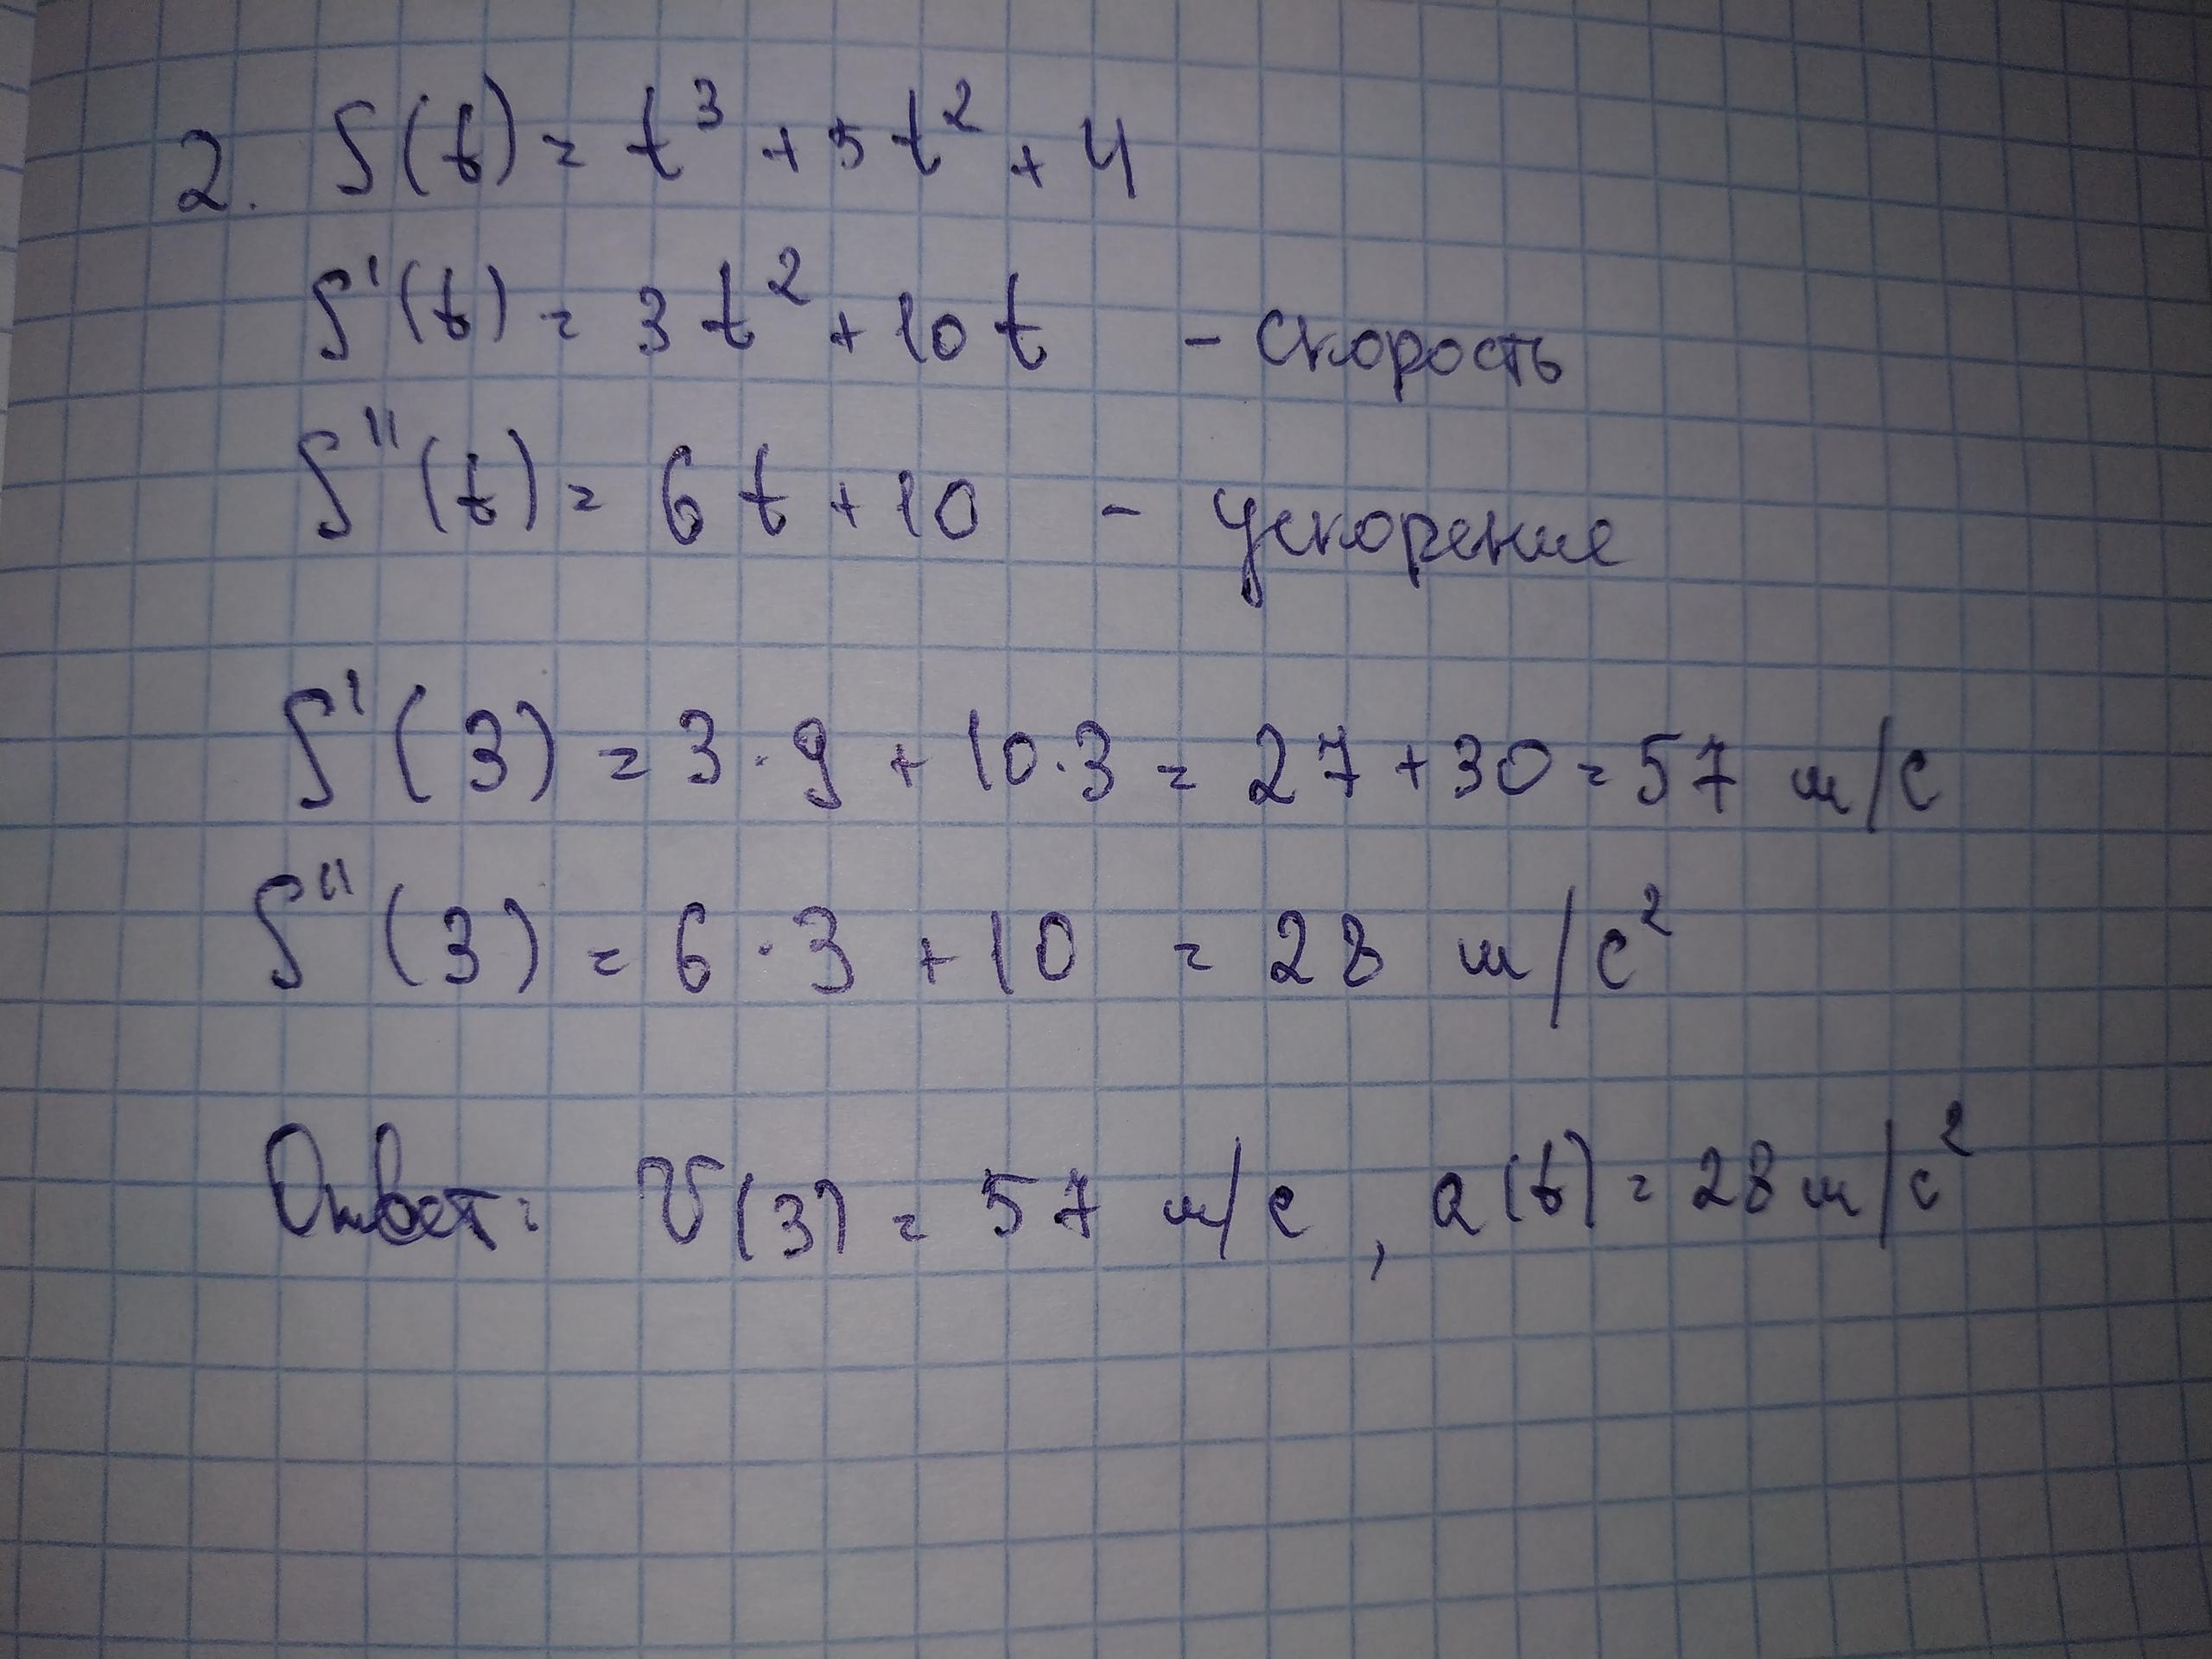 2. S(t) = t³ + 5t² + 4
S'(t) = 3t² + 10t - скорость
S''(t) = 6t + 10 - ускорение
S'(3) = 3·9 + 10·3 = 27 + 30 = 57 м/с
S''(3) = 6·3 + 10 = 28 м/с²
Ответ: V(3) = 57 м/с, a(t) = 28 м/с²